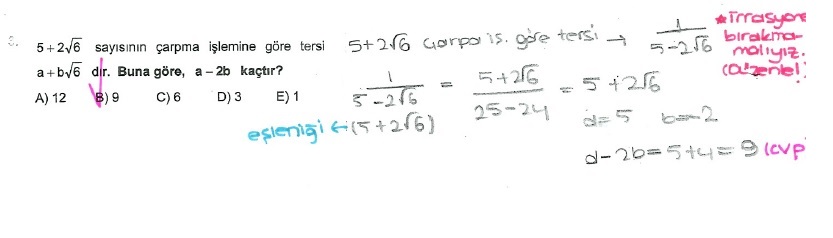 5+2√6 sayısının çarpma işlemine göre tersi
a+b√6 dır. Buna göre, a – 2b kaçtır?
A) 12 B) 9 C) 6 D) 3 E) 1
5+2√6 Çarpa is. göre tersi → 1/(5-2√6)
★İrrasyone
bırakma-
malıyız.
(Düzenle!)
1/(5-2√6) = (5+2√6)/(25-24) = 5+2√6
eşleniği ←(5+2√6)
a=5 b=-2
a-2b=5+4=9 (cvp